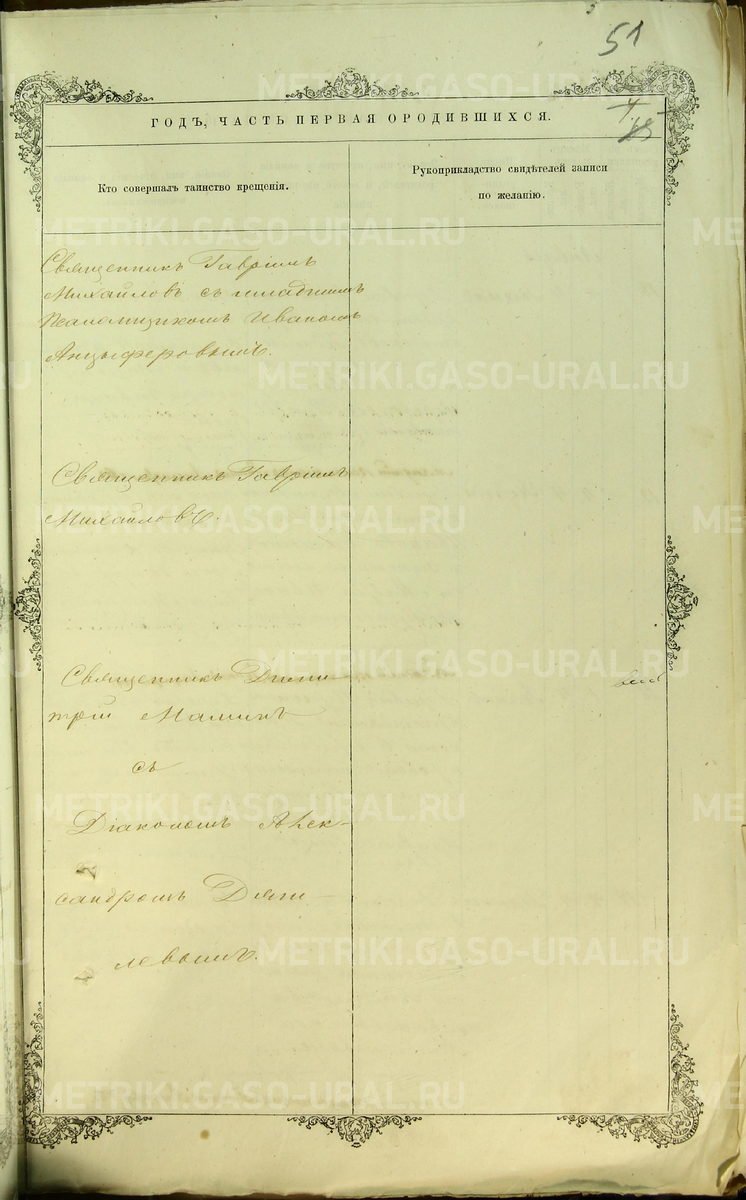 51
ГОДЪ, ЧАСТЬ ПЕРВАЯ О РОДИВШИХСЯ.
Кто совершалъ таинство крещенія.
Рукоприкладство свидѣтелей записи
по желанію.
Священникъ Гавріилъ
Михайловъ съ младшимъ
Псаломщикомъ Иваномъ
Анцыферовымъ.
Священникъ Гавріилъ
Михайловъ.
Священникъ Дими-
трій Маминъ
съ
Діакономъ Алек-
сандромъ Дяги-
левымъ.
METRIKI.GASO-URAL.RU